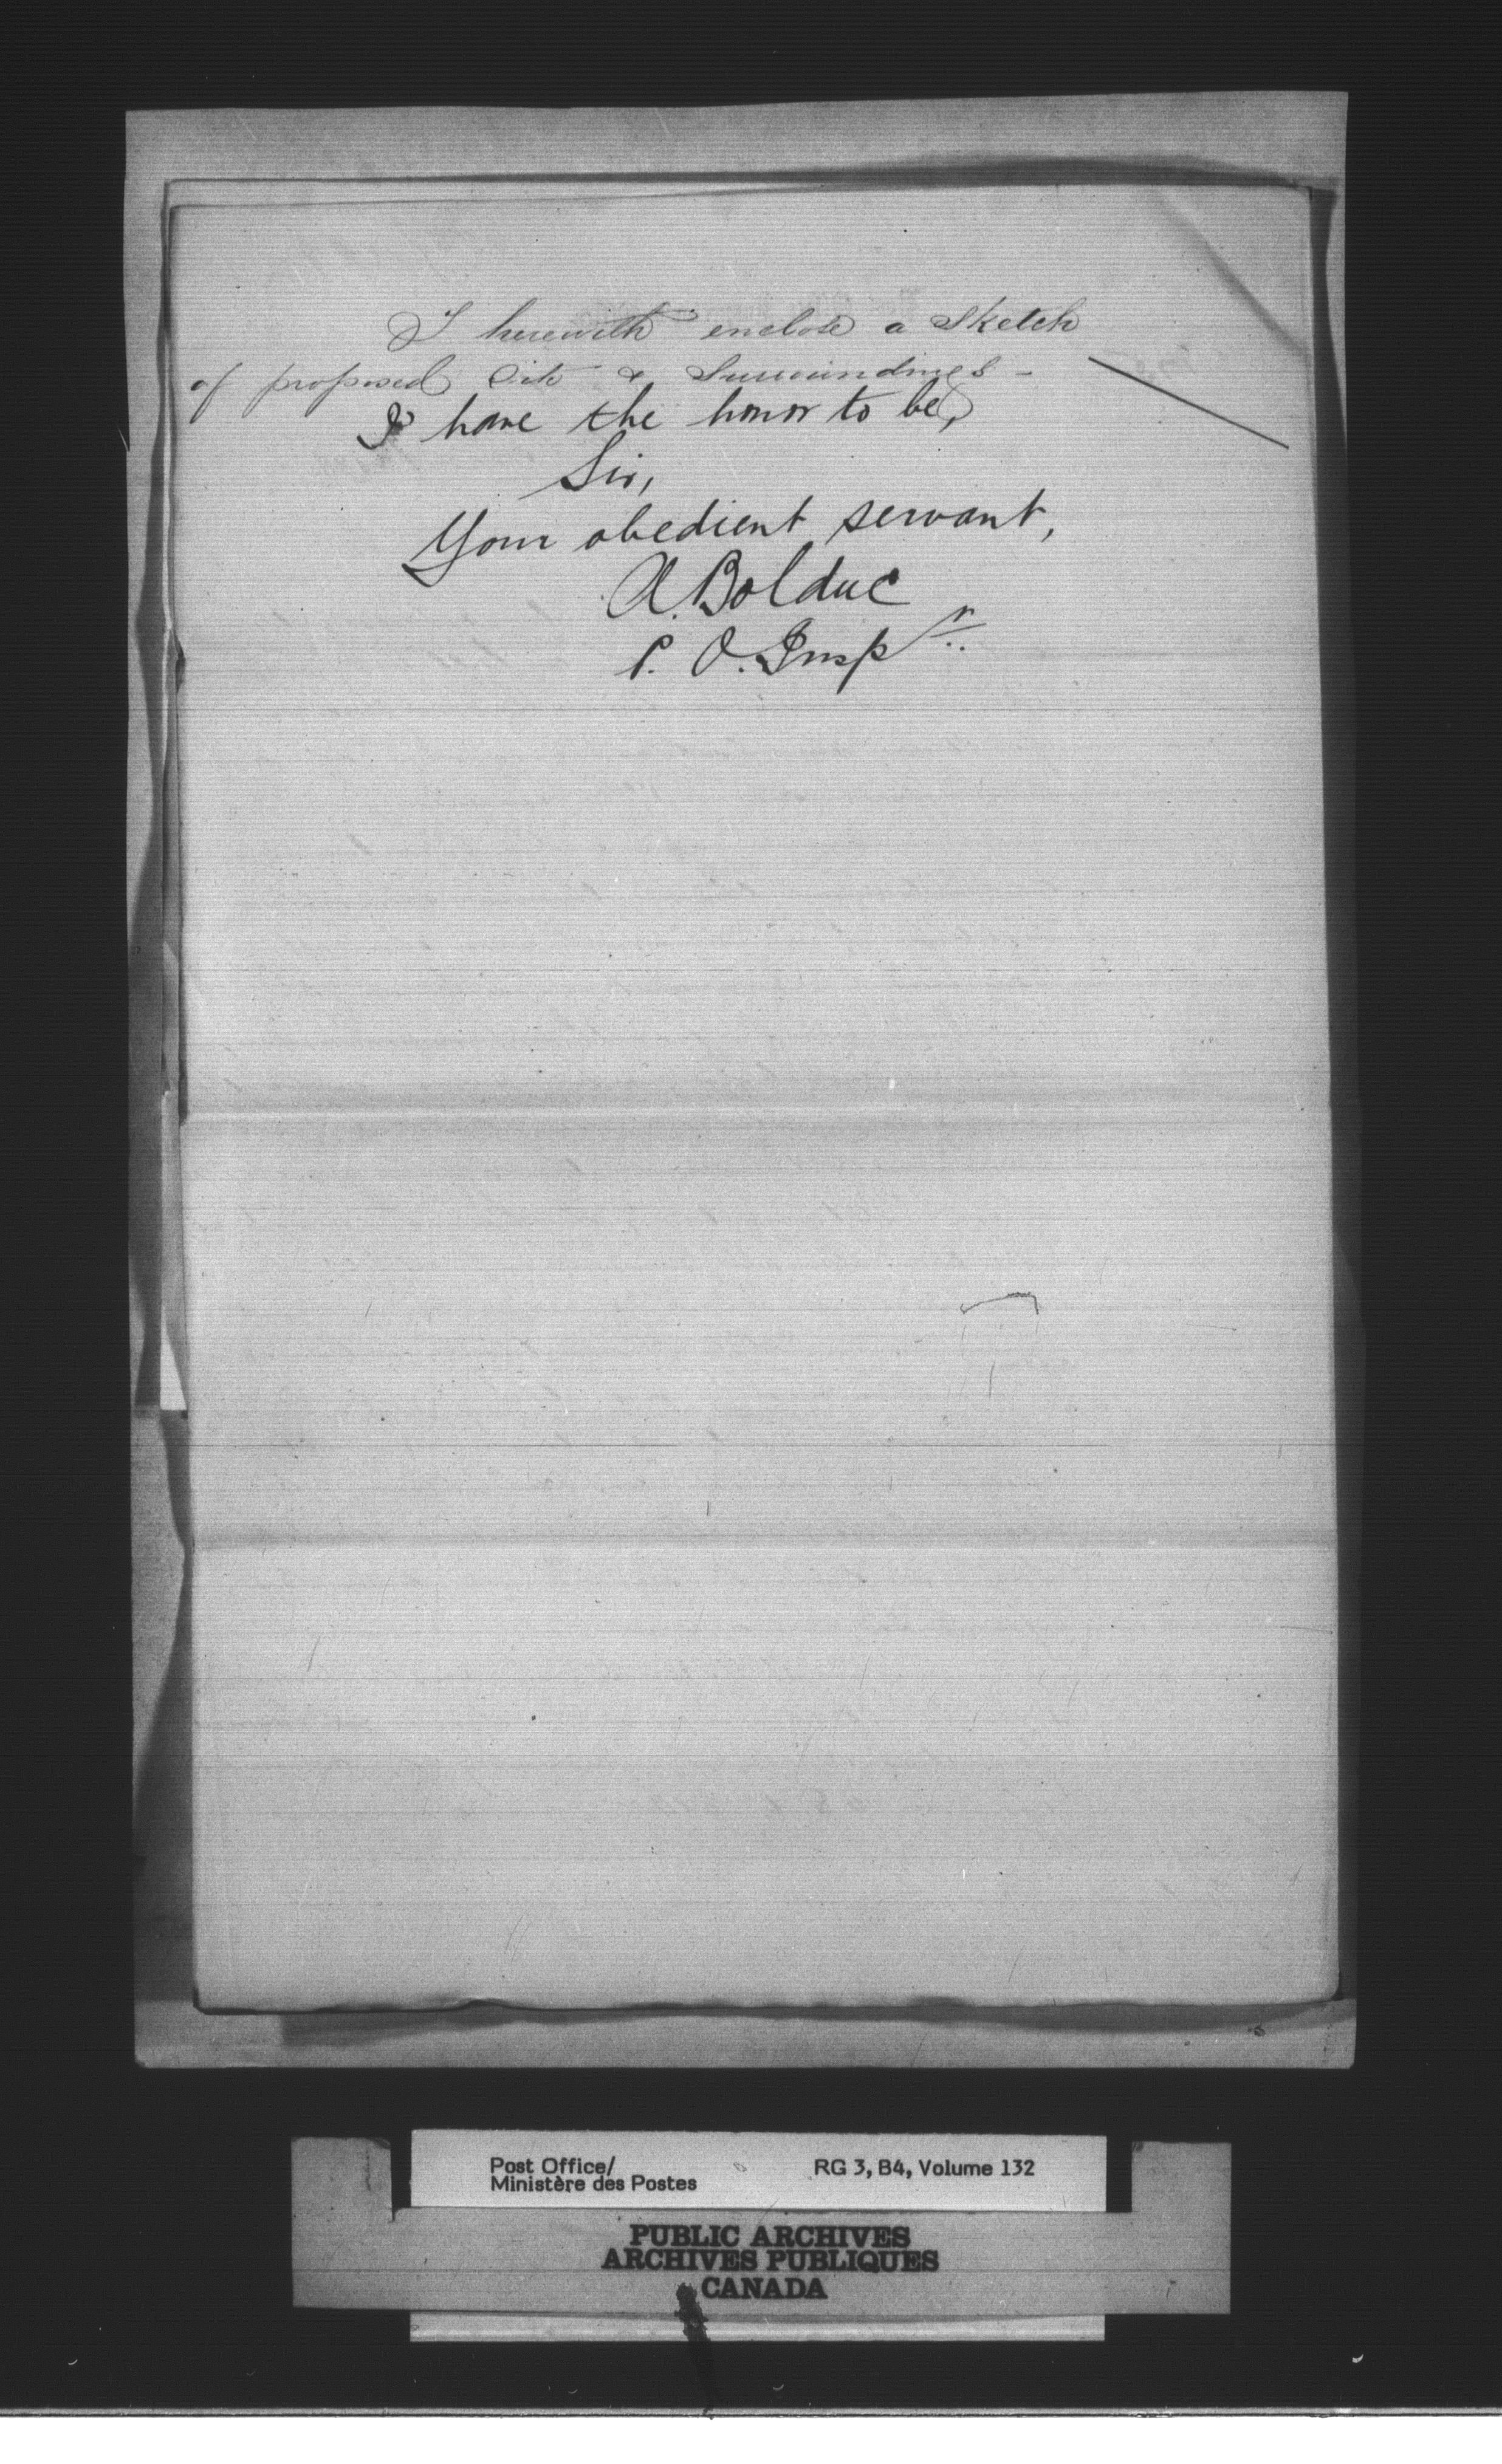 I herewith enclose a Sketch
of proposed Site & Surroundings -
I have the honor to be,
Sir,
Your obedient servant,
A. Bolduc
P. O. Inspr.
Post Office/
Ministère des Postes
RG 3, B4, Volume 132
PUBLIC ARCHIVES
ARCHIVES PUBLIQUES
CANADA